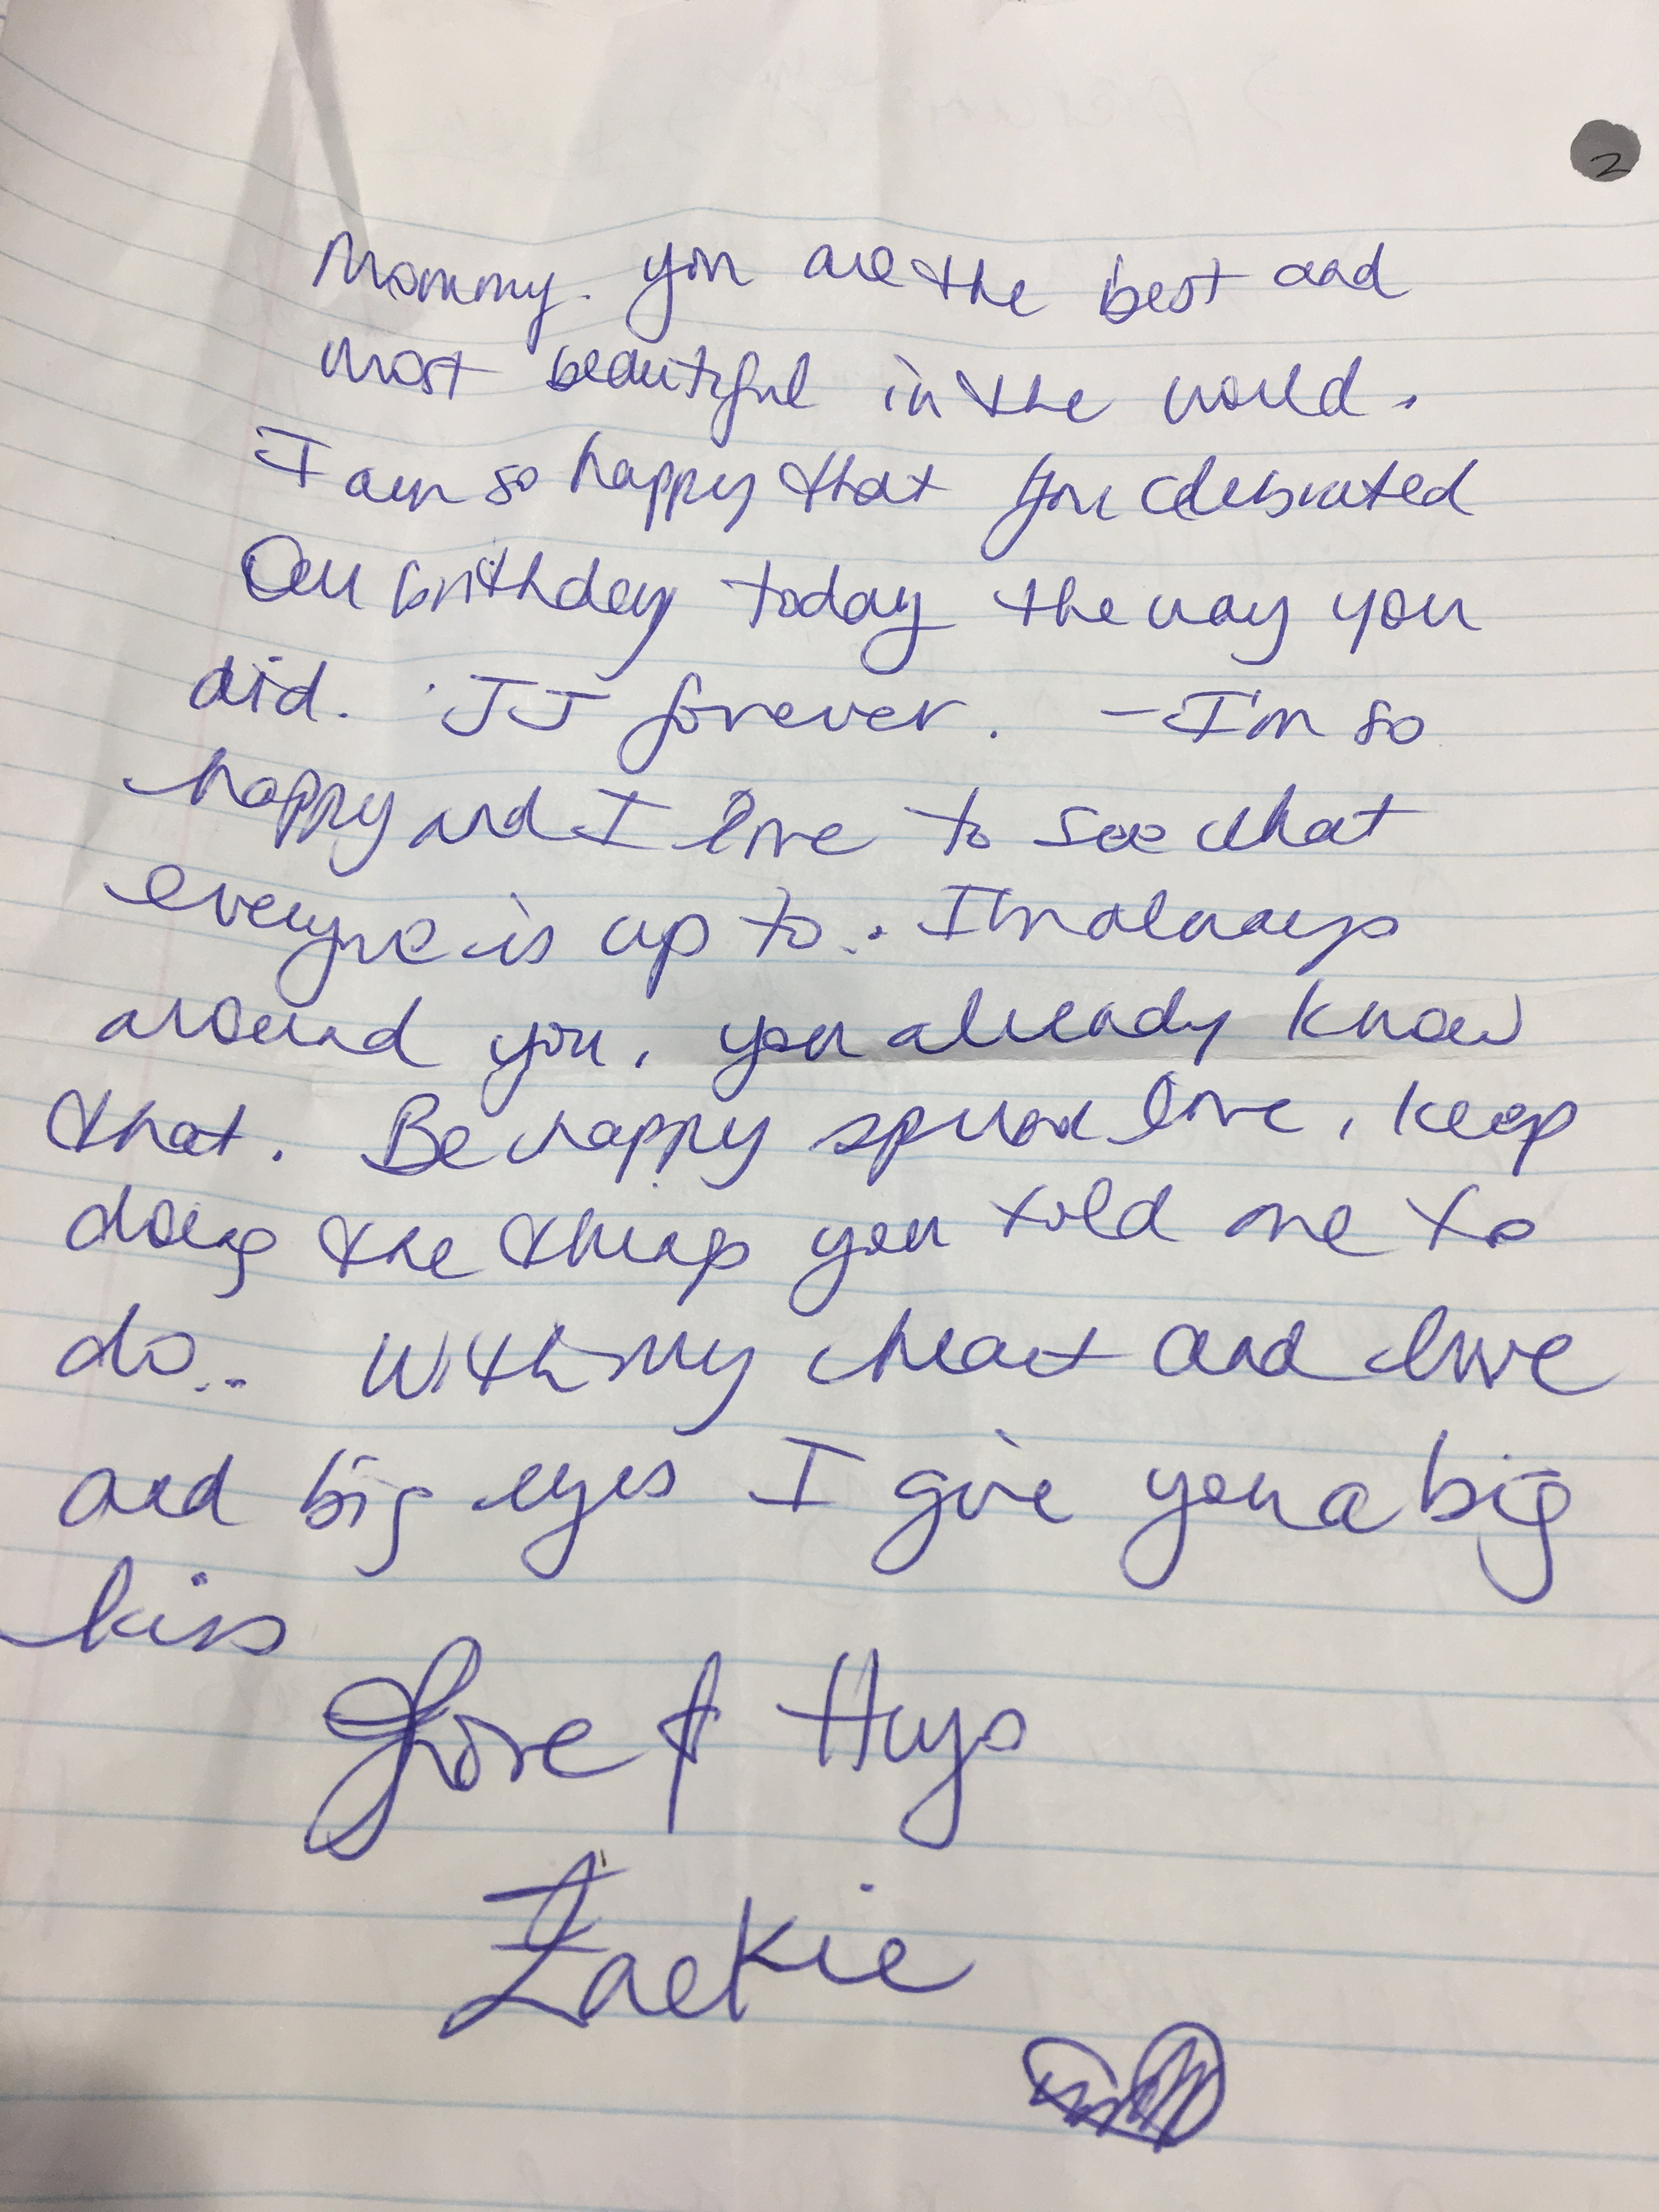 2
Mommy. you are the best and
most beautiful in the world.
I am so happy that you celebrated
Our birthday today the way you
did. JJ forever. - I'm so
happy and I love to see what
everyone is up to.. I'm always
around you, you already know
that. Be happy spread love, keep
doing the things you told me to
do... With my heart and love
and big eyes I give you a big
kiss
Love & Hugs
Jackie